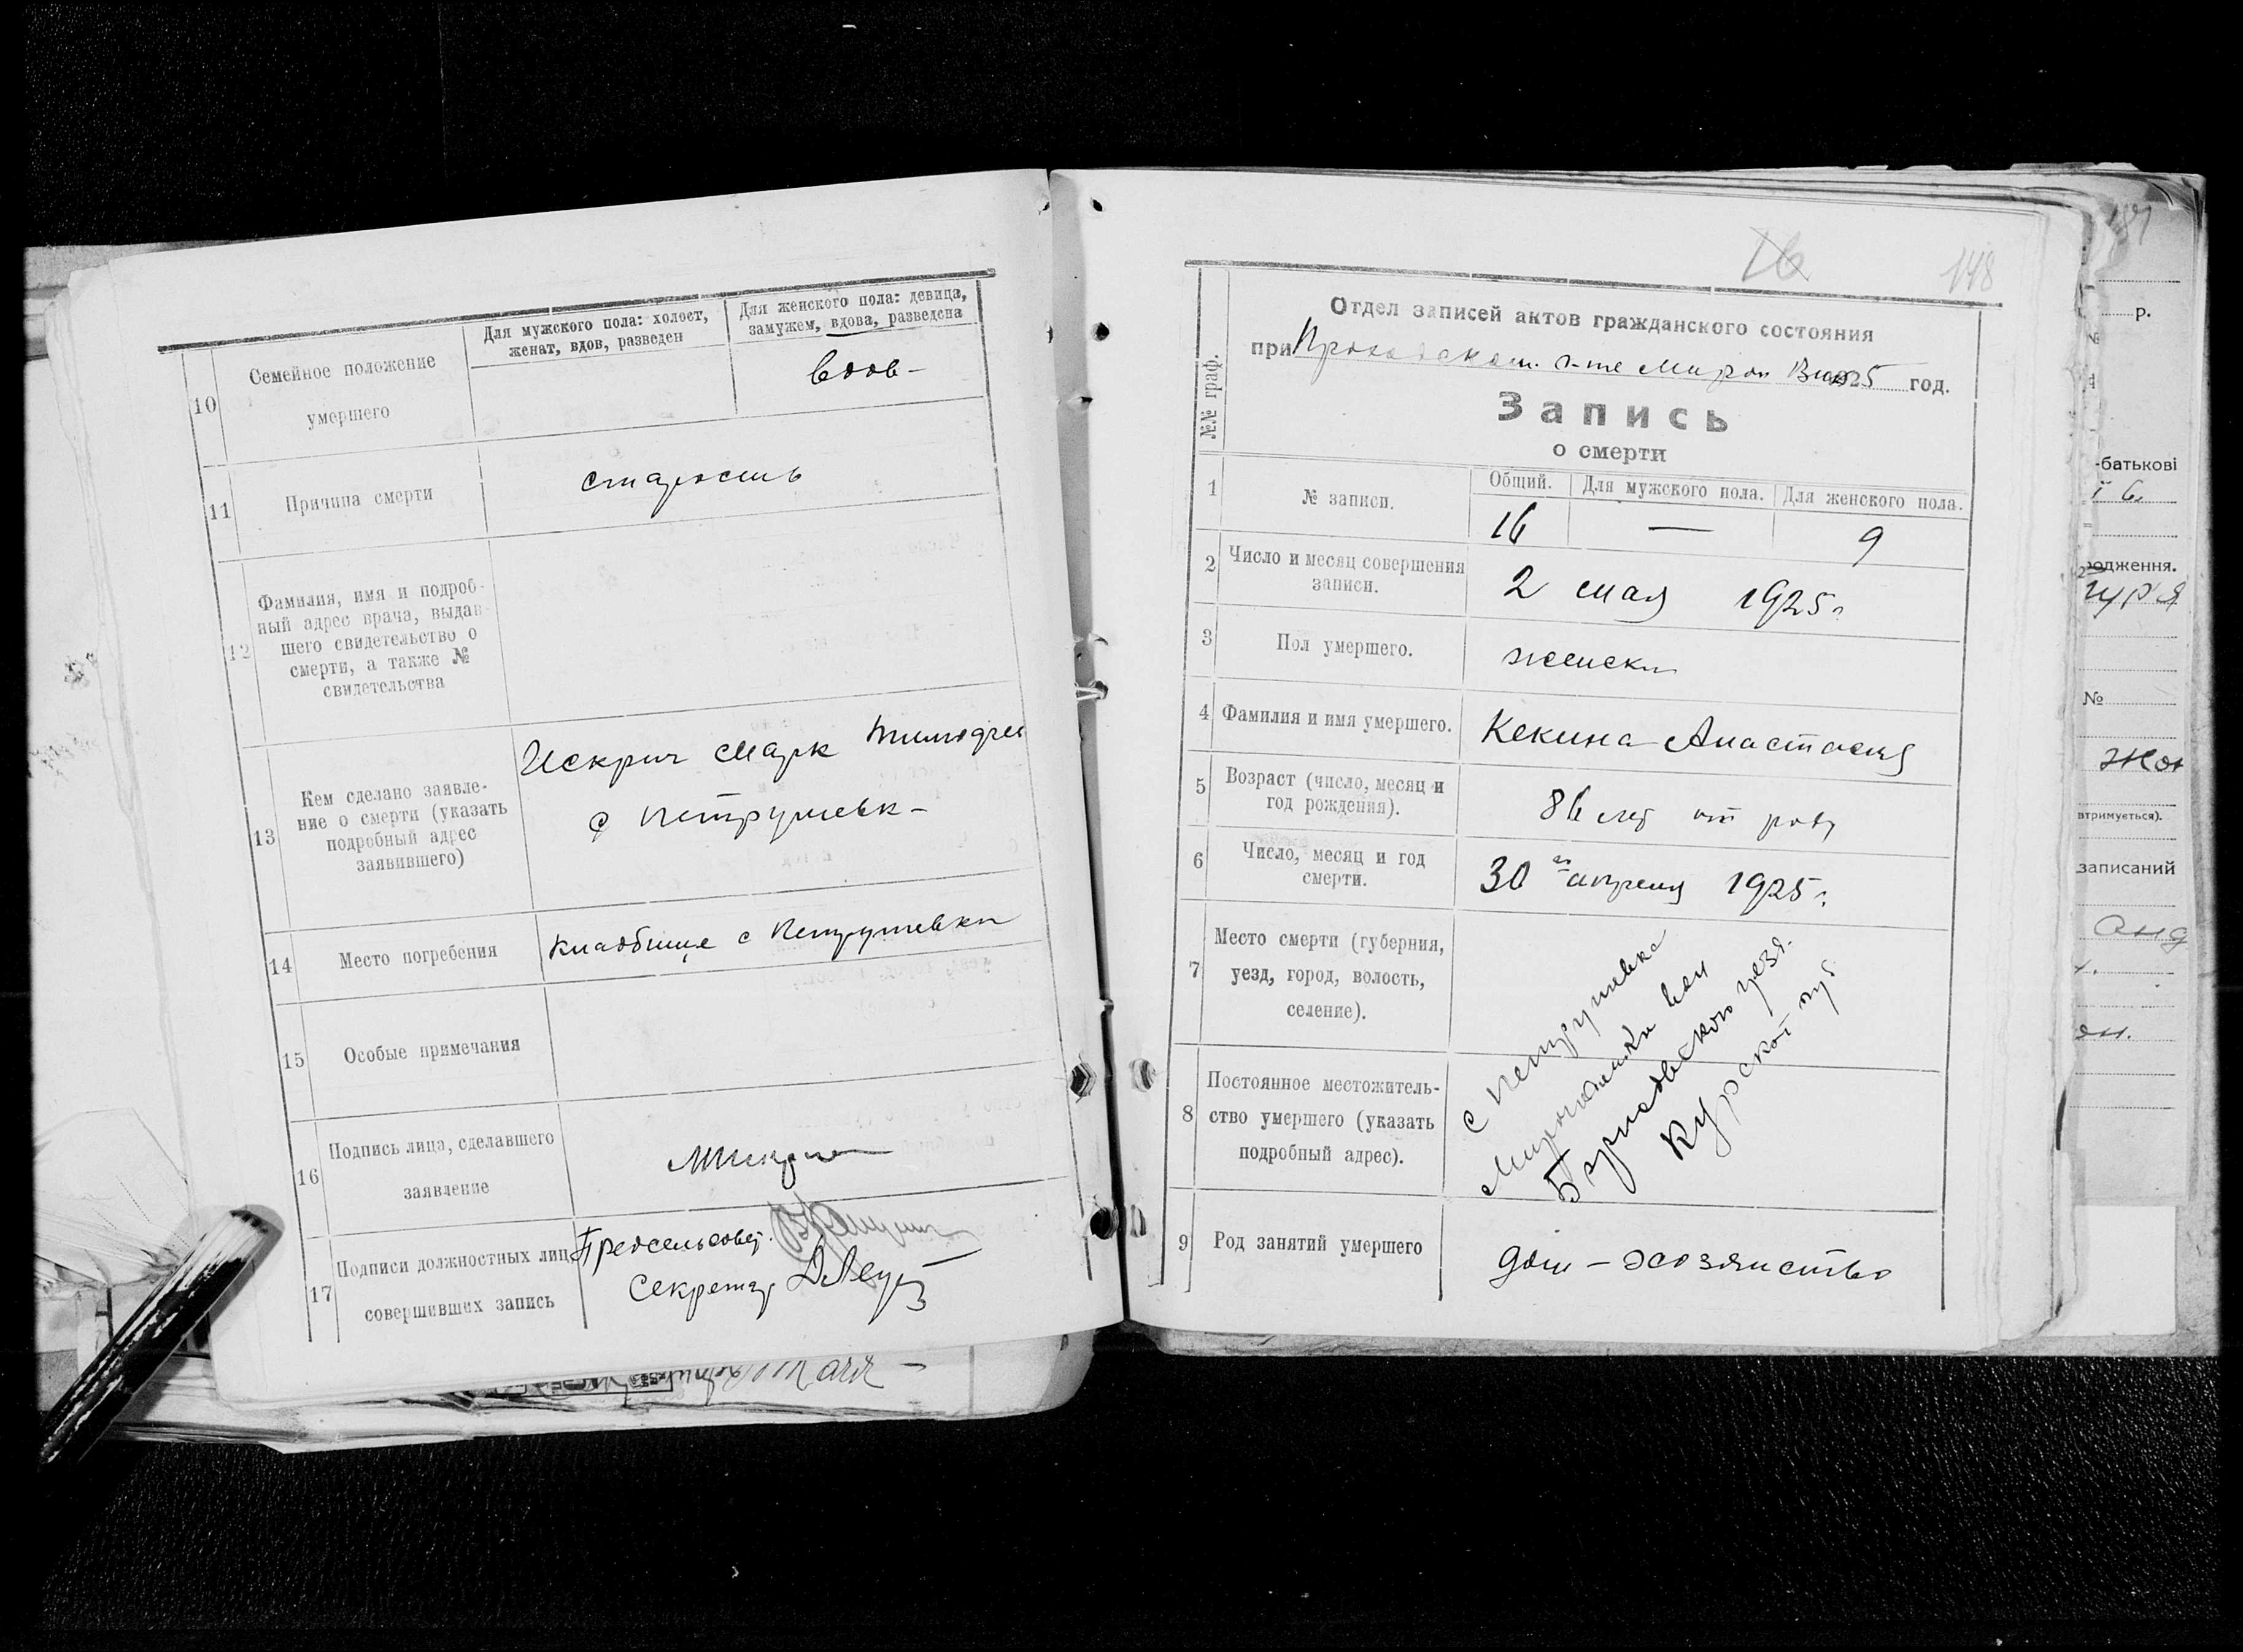 10
Семейное положение
умершего
Для мужского пола: холост,
женат, вдов, разведен
Для женского пола: девица,
замужем, вдова, разведена
вдов-
11
Причина смерти
старость
12
Фамилия, имя и подроб-
ный адрес врача, выдав-
шего свидетельство о
смерти, а также №
свидетельства
13
Кем сделано заявле-
ние о смерти (указать
подробный адрес
заявившего)
Искрич Марк
с Петрушевк-
14
Место погребения
Кладбище с Петрушевки
15
Особые примечания
16
Подпись лица, сделавшего
заявление
17
Подписи должностных лиц,
совершивших запись
Предсельсовет.
Секретар
16
148
№№ граф.
Отдел записей актов гражданского состояния
при 1925 год.
Запись
о смерти
1
№ записи.
Общий.
Для мужского пола.
Для женского пола.
16
—
9
2
Число и месяц совершения
записи.
2 мая 1925 г.
3
Пол умершего.
женски
4
Фамилия и имя умершего.
Кекина Анастасия
5
Возраст (число, месяц и
год рождения).
86 лет от роду
6
Число, месяц и год
смерти.
30 го апреля 1925 г.
7
Место смерти (губерния,
уезд, город, волость,
селение).
8
Постоянное местожитель-
ство умершего (указать
подробный адрес).
с Петрушевка
вол
уезд.
Курской губ
9
Род занятий умершего
дом-хозяиство
р.
№
-батькові
одження.
№
втримується).
записаний